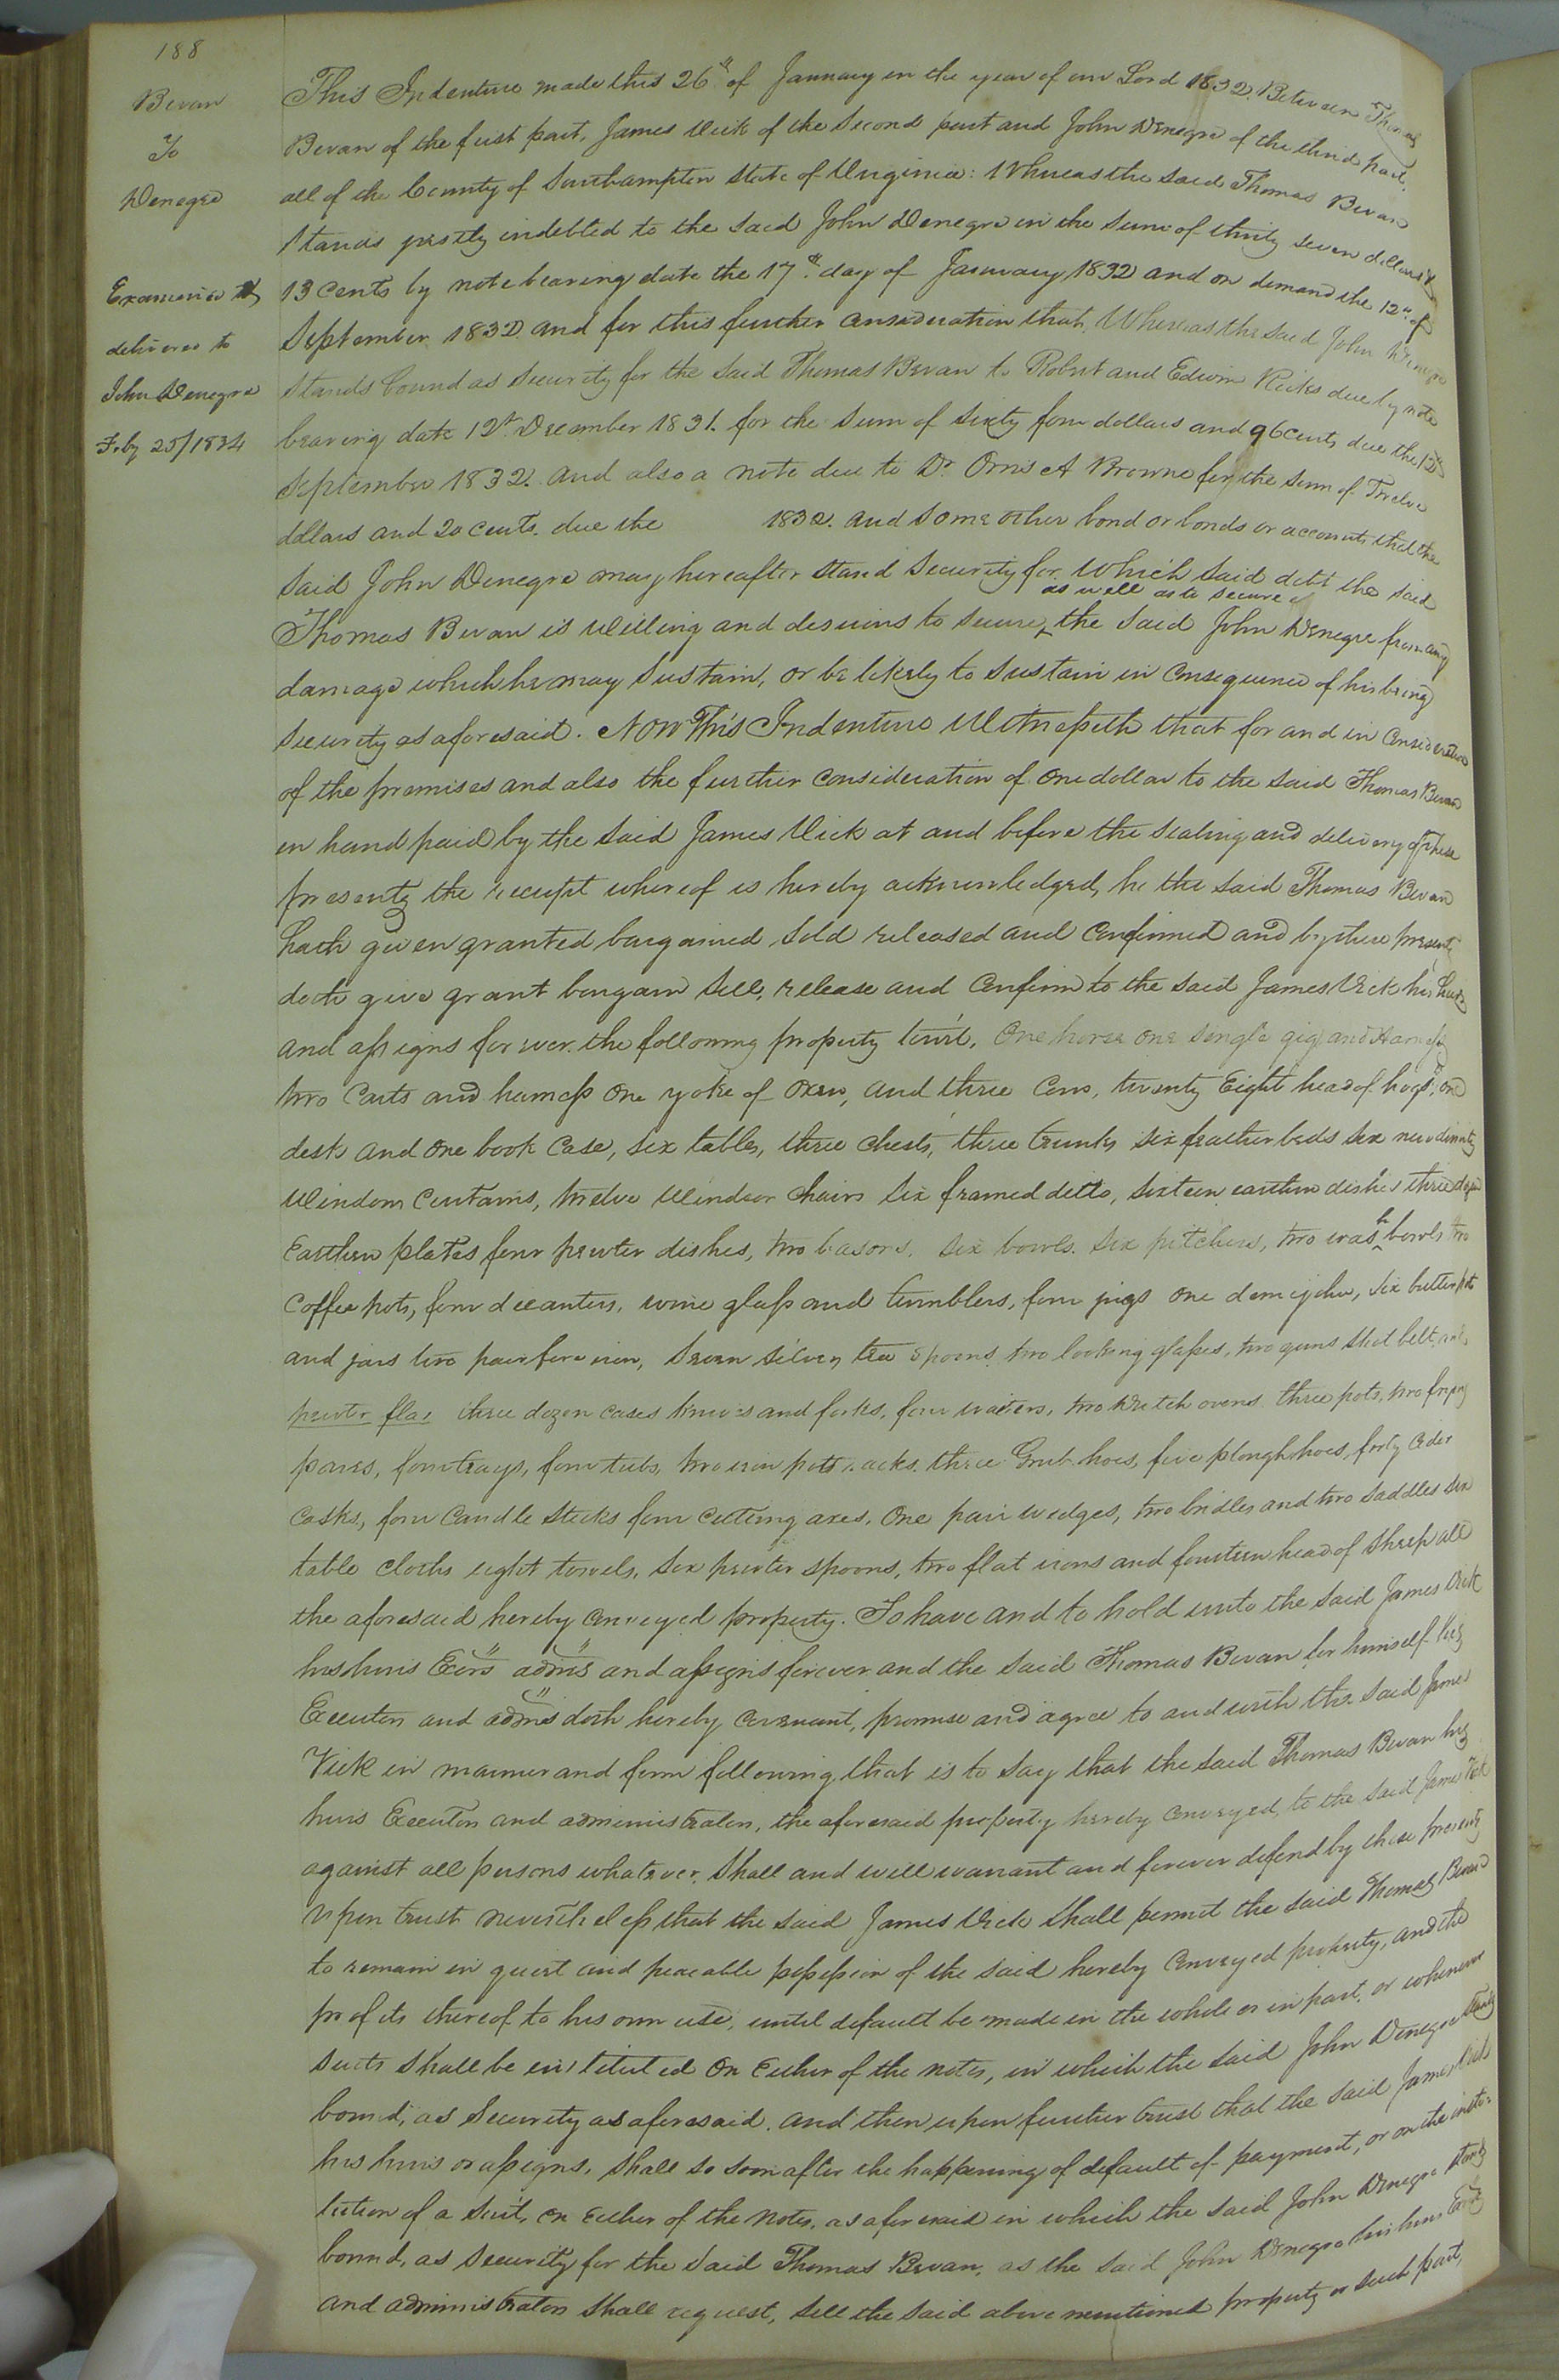 188
Bevan
To
Denegre
Examined &
delivered to
John Denegre
Feby 25/1834
This Indenture made this 26th of January in the year of our Lord 1832. Between Thomas
Bevan of the first part, James Vick of the Second part and John Denegre of the third part,
all of the County of Southampton State of Virginia: Whereas the said Thomas Bevan
Stands justly indebted to the said John Denegre in the sum of thirty seven dollars &
13 Cents by note bearing date the 17th day of January 1832 and on demand the 12th of
September 1832 and for this further consideration that, Whereas the said John Denegre
Stands bound as Security for the said Thomas Bevan to Robert and Edwin Ricks due by note
bearing date 12th December 1831. for the Sum of Sixty four dollars and 96 Cents due the 12th
September 1832. and also a note due to Dr. Orris A Browne for the sum of Twelve
dollars and 20 cents. due the 1832. and some other bond or bonds or accounts that the
said John Denegre may hereafter stand Security for. Which said debt the said
Thomas Bevan is Willing and desirous to secure, as well as to secure the said John Denegre from any
damage which he may Sustain, or be likely to sustain in consequence of his being
Security as aforesaid. Now This Indenture Witnesseth that for and in Consideration
of the premises and also the further consideration of one dollar to the said Thomas Bevan
in hand paid by the said James Vick at and before the sealing and delivery of these
presents the receipt whereof is hereby acknowledged, he the said Thomas Bevan
hath given granted bargained sold released and confirmed and by these presents
doth give grant bargain sell, release and confirm to the said James Vick his heirs
and assigns forever. the following property towit, One horse one single gig and Harness
two Carts and harness one yoke of oxen, and three Cows, twenty Eight head of hogs, one
desk and one book Case, six tables, three chests, three trunks six feather beds six new dimity
Window Curtains, twelve Windsor Chairs six framed ditto, sixteen earthen dishes three dozen
Earthen plates four pewter dishes, two basons, six bowls, six pitchers, two wash bowls two
Coffee pots, four decanters, wine glass and tumblers, four jugs one demijohn, six butter pots
and jars two pair fire iron, Seven Silver tea spoons, two looking glasses, two guns shot belt and
pewter flas three dozen cases knives and forks, four waiters, two Dutch ovens three pots, two frying
pans, four trays, four tubs, two iron pott racks, three Grub hoes, five plough hoes, forty Cider
Casks, four Candle Sticks four cutting axes, one pair wedges, two bridles and two saddles six
table Cloths eight towels, six pewter spoons, two flat irons and fourteen head of Sheep all
the aforesaid hereby conveyed property. To have and to hold unto the said James Vick
his heirs Exors admrs and assigns forever and the said Thomas Bevan for himself his
Executors and admrs doth hereby Covenant, promise and agree to and with the said James
Vick in manner and form following that is to say that the said Thomas Bevan his
heirs Executors and administrators, the aforesaid property hereby conveyed, to the said James Vick
against all persons whatever, Shall and will warrant and forever defend by these presents
upon trust nevertheless that the said James Vick Shall permit the said Thomas Bevan
to remain in quiet and peaceable possession of the said hereby conveyed property, and the
profits thereof to his own use, until default be made in the whole or in part, or whenever
suits Shall be instituted on Either of the notes, in which the said John Denegre stands
bound, as Security as aforesaid. and then upon further trust that the said James Vick
his heirs or assigns, Shall so soon after the happening of default of payment, or on the insti-
tution of a Suit, on Either of the notes, as aforesaid in which the said John Denegre stands
bound, as Security for the said Thomas Bevan, as the said John Denegre his heirs Exors
and administrators Shall request, sell the said above mentioned property or such part,